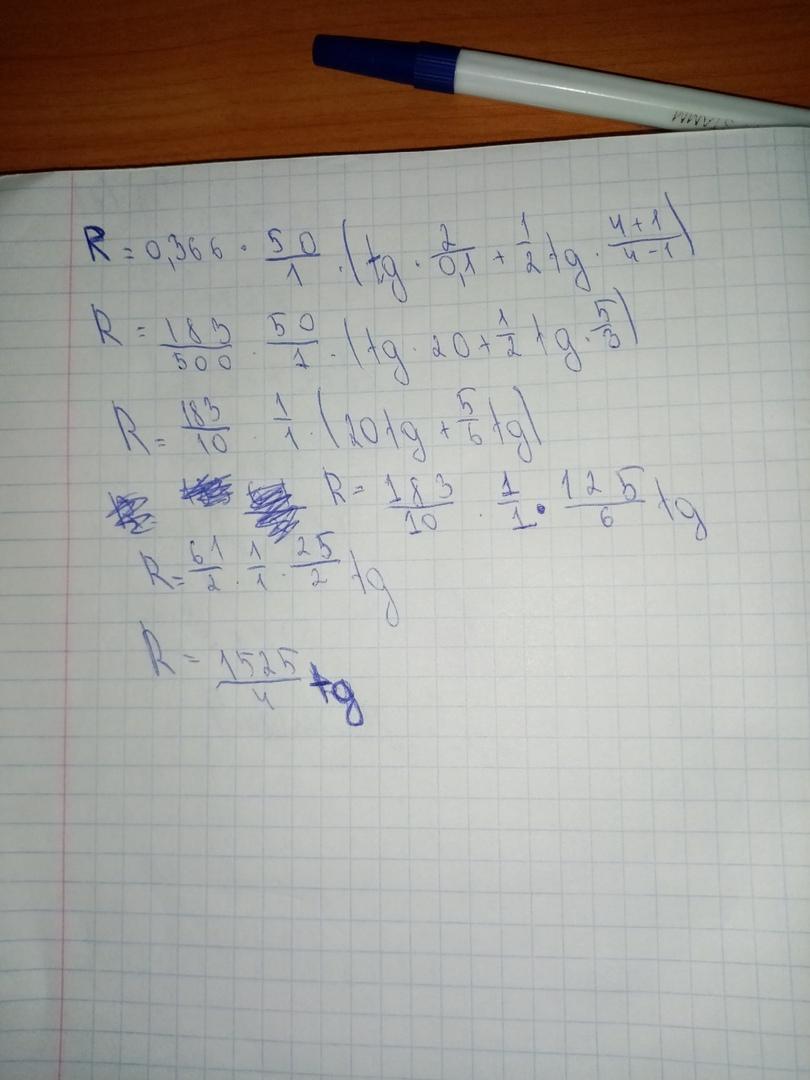 STAMM
R = 0,366 · 50/1 · (tg · 2/0,1 + 1/2 tg · 4+1/4-1)
R = 183/500 · 50/1 · (tg · 20 + 1/2 tg · 5/3)
R = 183/10 · 1/1 · (20 tg + 5/6 tg)
R = 183/10 · 1/1 · 125/6 tg
R = 61/2 · 1/1 · 25/2 tg
R = 1525/4 tg